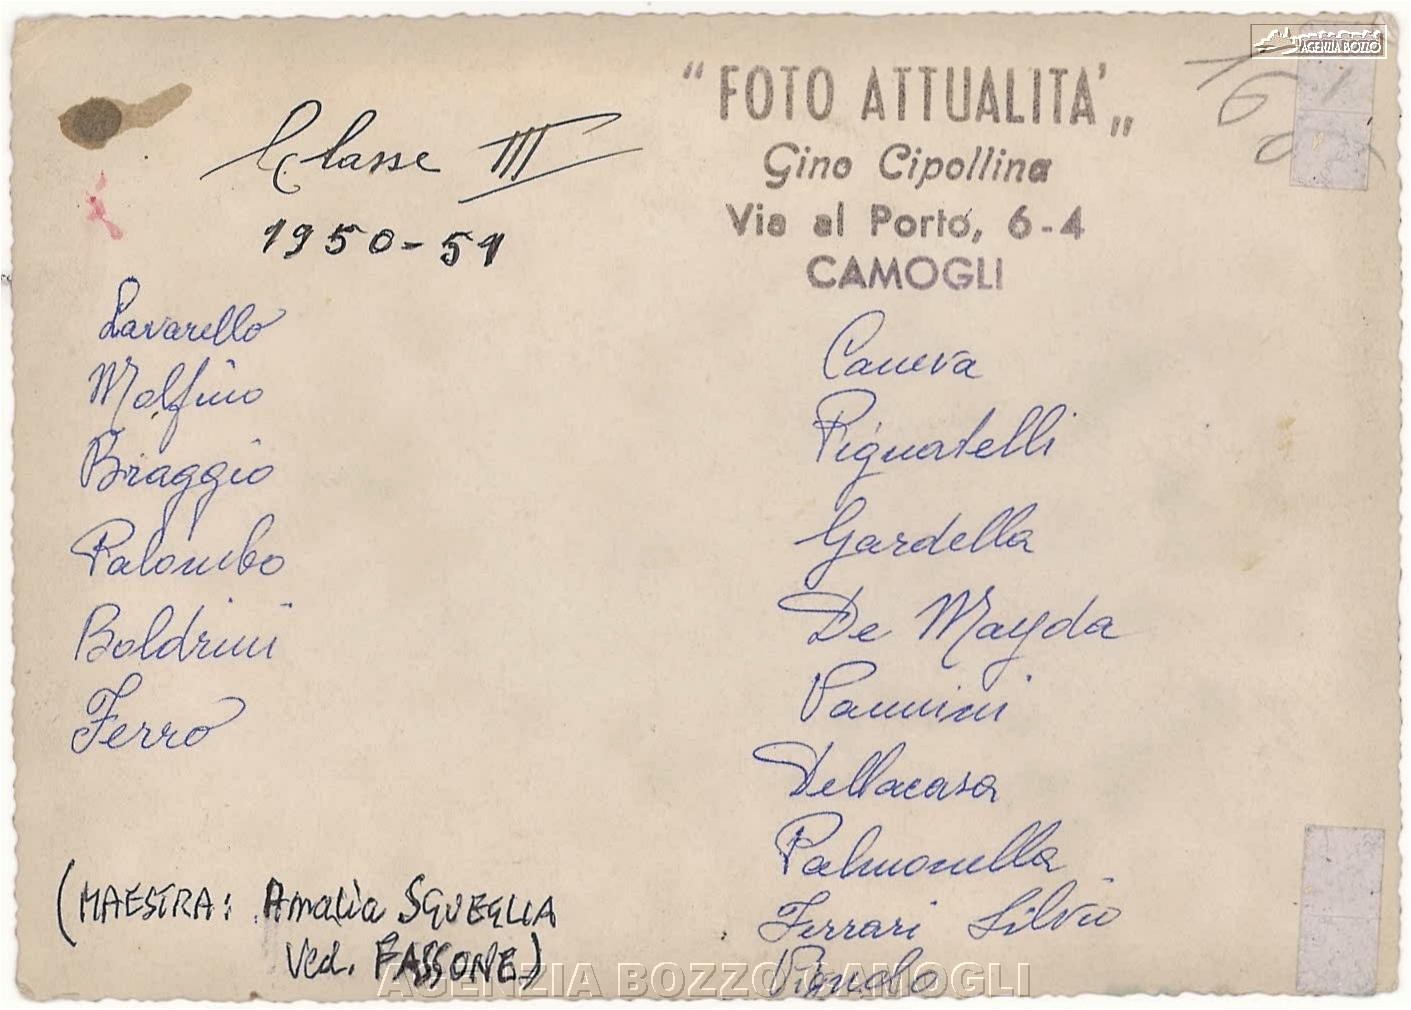 AGENZIA BOZZO
Classe III
1950-51
"FOTO ATTUALITA'"
Gino Cipollina
Via al Porto, 6-4
CAMOGLI
Lavarello
Molfino
Braggio
Palombo
Boldrini
Ferro
Caneva
Pignatelli
Gardella
De Mayda
Pannini
Dellacasa
Palmonella
Ferrari Silvio
(MAESTRA: Amalia SQUEGLIA
Ved. FASSONE)
AGENZIA BOZZO CAMOGLI